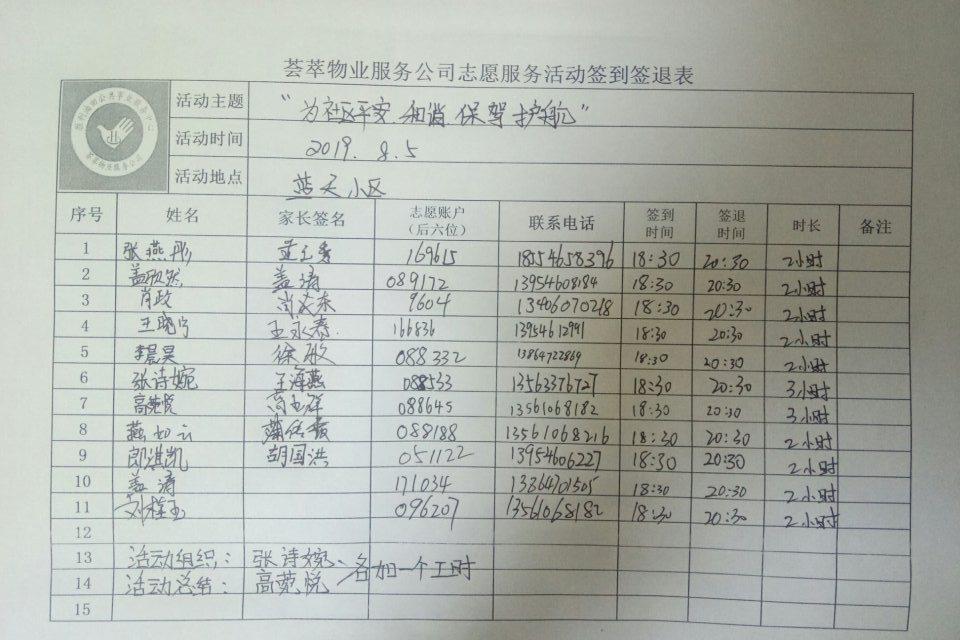 荟萃物业服务公司志愿服务活动签到签退表
胜利油田公共事业服务中心
荟萃物业服务公司
活动主题 "为社区平安、和谐 保驾护航"
活动时间 2019. 8. 5
活动地点 蓝天小区
序号 姓名 家长签名 志愿账户（后六位） 联系电话 签到时间 签退时间 时长 备注
1 张燕彤 169615 18554658396 18:30 20:30 2小时
2 盖欣然 盖涛 089172 13954608184 18:30 20:30 2小时
3 肖政 肖茂东 9604 13406070218 18:30 20:30 2小时
4 王晓宁 王永春 166836 13954612991 18:30 20:30 2小时
5 李晨昊 徐敏 088332 13864722869 18:30 20:30 2小时
6 张诗婉 王海燕 088533 13562376727 18:30 20:30 3小时
7 高菀悦 088645 13561068182 18:30 20:30 3小时
8 燕如云 088188 13561068216 18:30 20:30 2小时
9 郎淇凯 胡国洪 051122 13954606227 18:30 20:30 2小时
10 盖涛 171034 13864701505 18:30 20:30 2小时
11 刘桂玉 096207 13561068182 18:30 20:30 2小时
12
13 活动组织： 张诗婉、各加一个工时
14 活动总结： 高菀悦
15